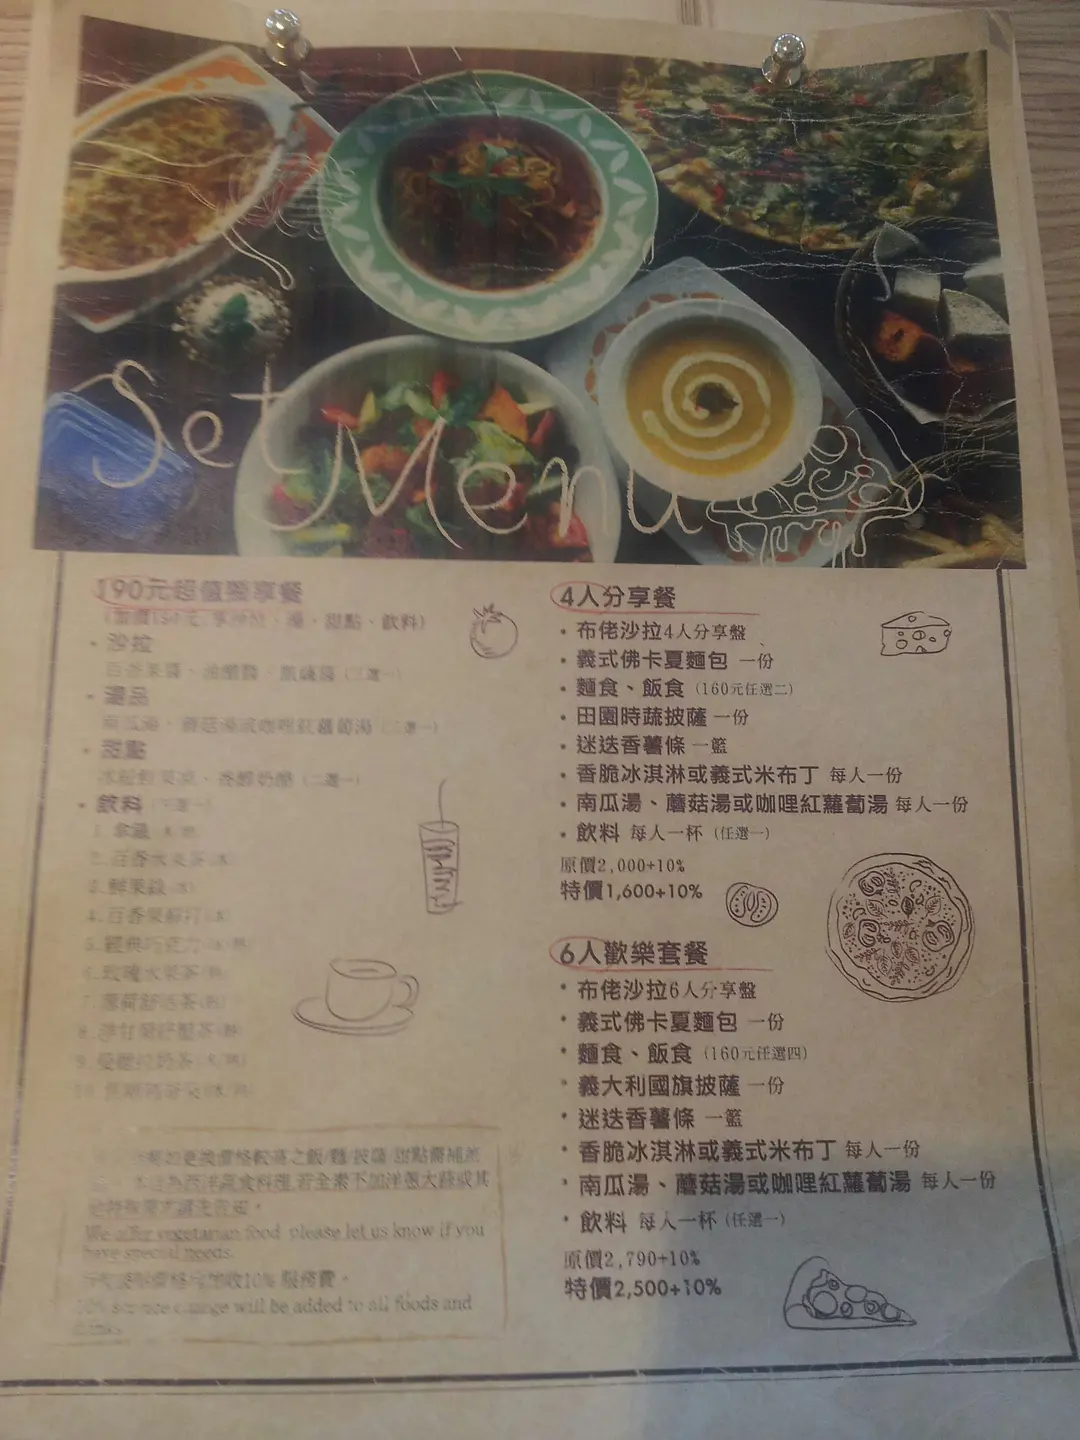 Set Menu
190元超值獨享餐
甜點、飲料)
· 沙拉
百香果醬、油醋醬、凱薩醬(三選一)
· 湯品
南瓜湯、蘑菇湯或咖哩紅蘿蔔湯(三選一)
· 甜點
奶酪(二選一)
· 飲料
1.拿鐵
2.百香水果茶(冰)
3.鮮果
4.百香果蘇打(冰)
5.經典巧克力(冰/熱)
6.玫瑰水果茶(熱)
7.薄荷舒活茶(熱)
8.洋甘菊舒壓茶(熱)
9.奶茶(冰/熱)
10.焦糖
更換價格較高之飯/麵/披薩 甜點需補差
本店為西洋蔬食料理,若全素不加洋蔥大蒜或其
他特殊需求請先告知。
We offer vegetarian food please let us know if you
have special needs.
加收10% 服務費。
10% service charge will be added to all foods and
4人分享餐
· 布佬沙拉4人分享盤
· 義式佛卡夏麵包 一份
· 麵食、飯食 (160元任選二)
· 田園時蔬披薩 一份
· 迷迭香薯條 一籃
· 香脆冰淇淋或義式米布丁 每人一份
· 南瓜湯、蘑菇湯或咖哩紅蘿蔔湯 每人一份
· 飲料 每人一杯 (任選一)
原價2,000+10%
特價1,600+10%
6人歡樂套餐
· 布佬沙拉6人分享盤
· 義式佛卡夏麵包 一份
· 麵食、飯食 (160元任選四)
· 義大利國旗披薩 一份
· 迷迭香薯條 一籃
· 香脆冰淇淋或義式米布丁 每人一份
· 南瓜湯、蘑菇湯或咖哩紅蘿蔔湯 每人一份
· 飲料 每人一杯 (任選一)
原價2,790+10%
特價2,500+10%